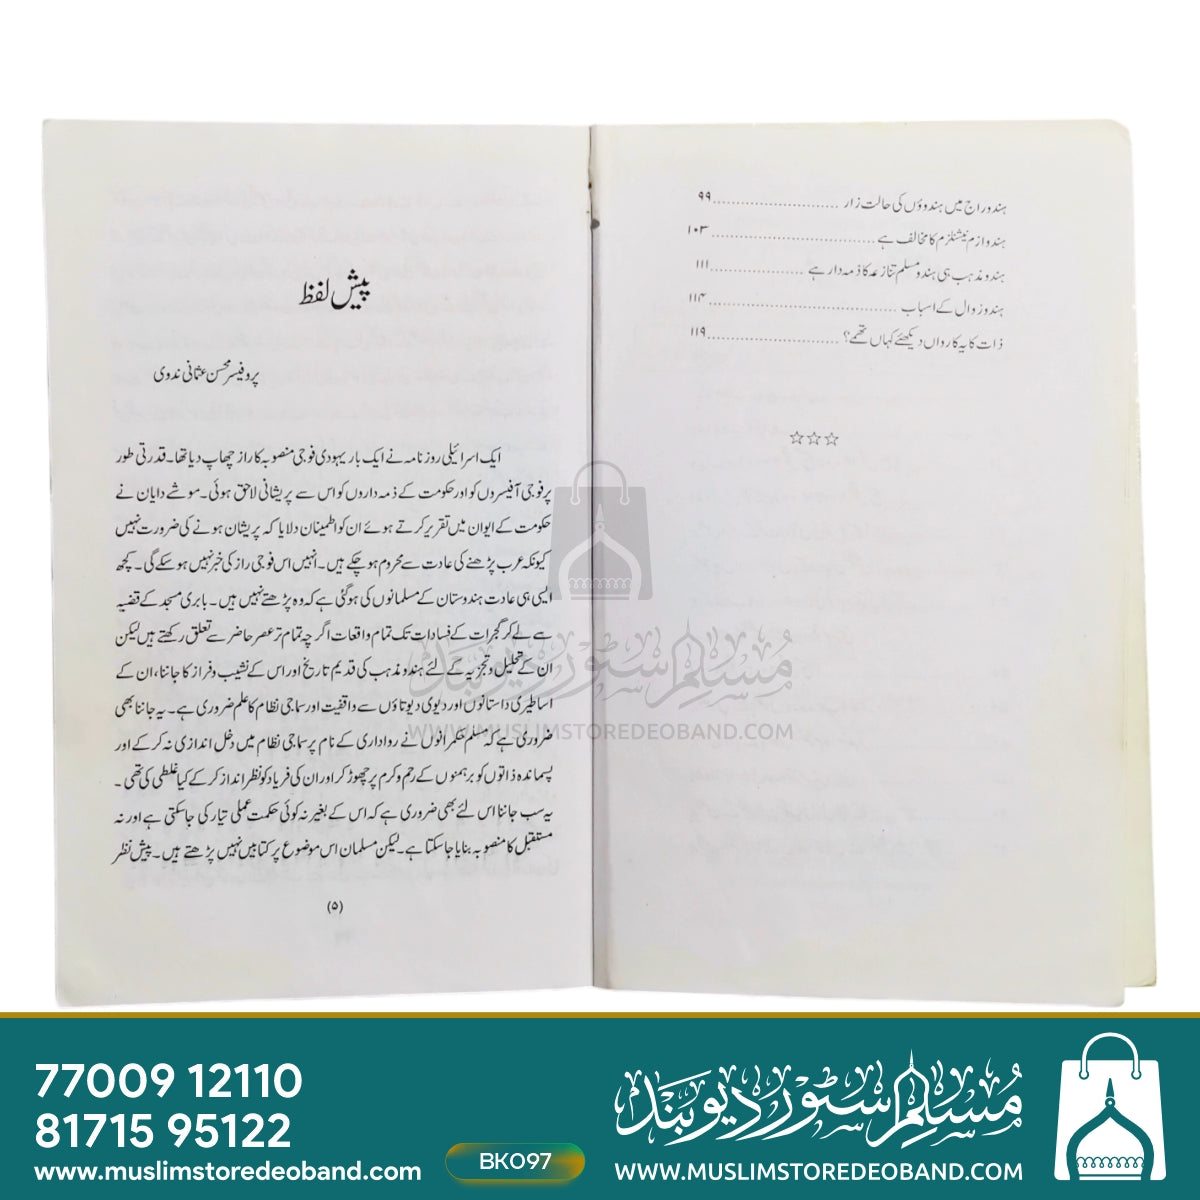 ہندو راج میں ہندوؤں کی حالت زار ........................ ۹۹
ہندوازم نیشنلزم کا مخالف ہے ........................ ۱۰۳
ہندو مذہب ہی ہندو مسلم تنازعہ کا ذمہ دار ہے ........................ ۱۱۱
ہندو زوال کے اسباب ........................ ۱۱۴
ذات کا یہ کارواں دیکھئے کہاں تھمے؟ ........................ ۱۱۹
☆☆☆
پیش لفظ
پروفیسر محسن عثمانی ندوی
ایک اسرائیلی روزنامہ نے ایک بار یہودی فوجی منصوبہ کا راز چھاپ دیا تھا۔ قدرتی طور
پر فوجی آفیسروں کو اور حکومت کے ذمہ داروں کو اس سے پریشانی لاحق ہوئی۔ موشے دایان نے
حکومت کے ایوان میں تقریر کرتے ہوئے ان کو اطمینان دلایا کہ پریشان ہونے کی ضرورت نہیں
کیونکہ عرب پڑھنے کی عادت سے محروم ہوچکے ہیں۔ انہیں اس فوجی راز کی خبر نہیں ہوسکے گی۔ کچھ
ایسی ہی عادت ہندوستان کے مسلمانوں کی ہوگئی ہے کہ وہ پڑھتے نہیں ہیں۔ بابری مسجد کے قضیہ
سے لے کر گجرات کے فسادات تک تمام واقعات اگرچہ تمام تر عصر حاضر سے تعلق رکھتے ہیں لیکن
ان کے تحلیل و تجزیہ کے لئے ہندو مذہب کی قدیم تاریخ اور اس کے نشیب و فراز کا جاننا، ان کے
اساطیری داستانوں اور دیوی دیوتاؤں سے واقفیت اور سماجی نظام کا علم ضروری ہے۔ یہ جاننا بھی
ضروری ہے کہ مسلم حکمرانوں نے رواداری کے نام پر سماجی نظام میں دخل اندازی نہ کرکے اور
پسماندہ ذاتوں کو برہمنوں کے رحم و کرم پر چھوڑ کر اور ان کی فریاد کو نظر انداز کرکے کیا غلطی کی تھی۔
یہ سب جاننا اس لئے بھی ضروری ہے کہ اس کے بغیر نہ کوئی حکمت عملی تیار کی جاسکتی ہے اور نہ
مستقبل کا منصوبہ بنایا جاسکتا ہے۔ لیکن مسلمان اس موضوع پر کتابیں نہیں پڑھتے ہیں۔ پیش نظر
(۵)
مسلم سٹور دیوبند
WWW.MUSLIMSTOREDEOBAND.COM
77009 12110
81715 95122
www.muslimstoredeoband.com
BK097
مسلم سٹور دیوبند
WWW.MUSLIMSTOREDEOBAND.COM